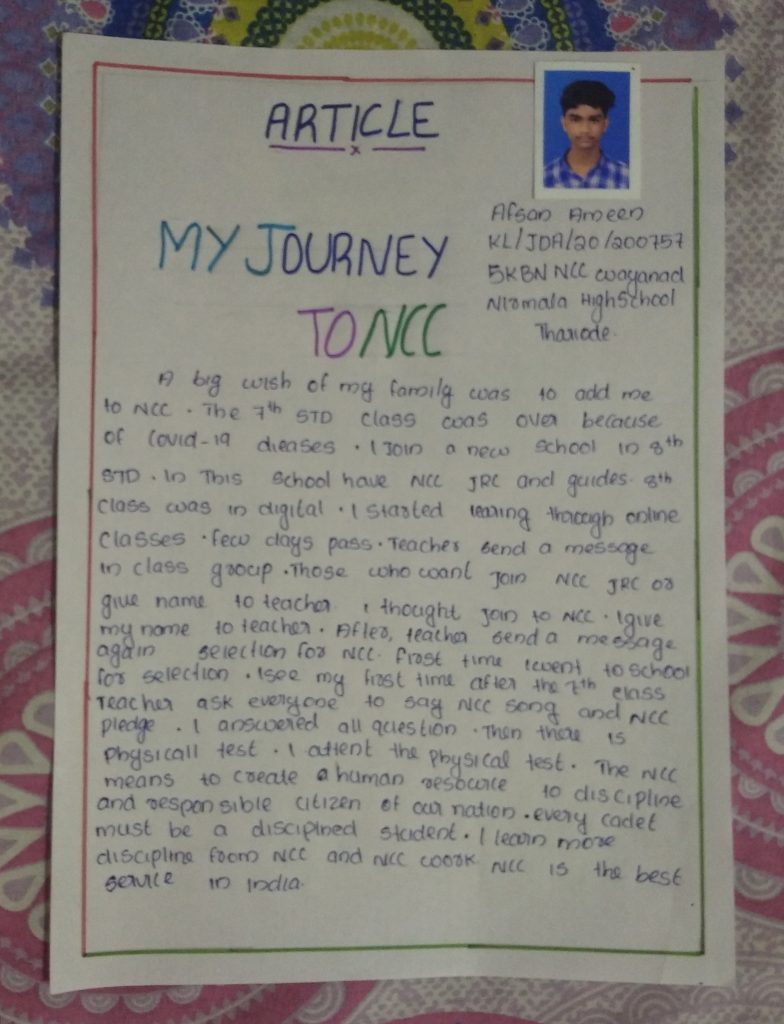 ARTICLE
x
Afsan Ameen
KL/JDA/20/200757
5KBN NCC wayanad
Nirmala HighSchool
Thariode.
MY JOURNEY
TO NCC
A big wish of my family was to add me
to NCC. The 7th STD class was over because
of Covid-19 dieases. I Join a new school in 8th
STD. In This school have NCC JRC and guides. 8th
class was in digital. I started learing through online
classes. few days pass. Teacher send a message
in class group. Those who want Join NCC JRC or
give name to teacher. I thought Join to NCC. I give
my name to teacher. After, teacher send a message
again selection for NCC. first time I went to school
for selection. I see my first time after the 7th class
Teacher ask everyone to say NCC song and NCC
pledge. I answered all question. Then there is
physicall test. I attent the physical test. The NCC
means to create a human resource to discipline
and responsible citizen of our nation. every cadet
must be a disciplned student. I learn more
discipline from NCC and NCC work. NCC is the best
service in India.